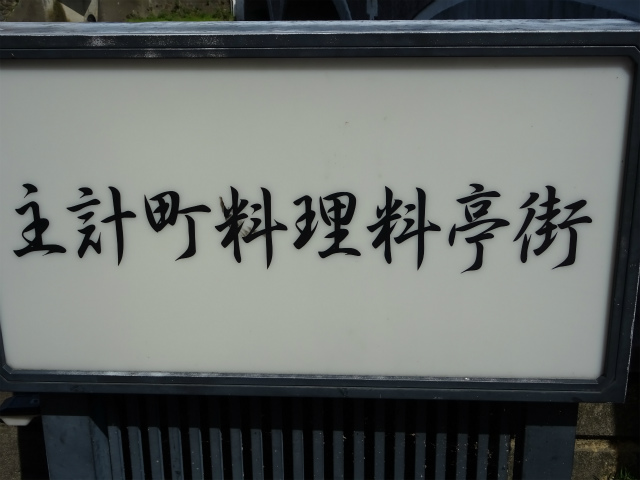 主計町料理料亭街